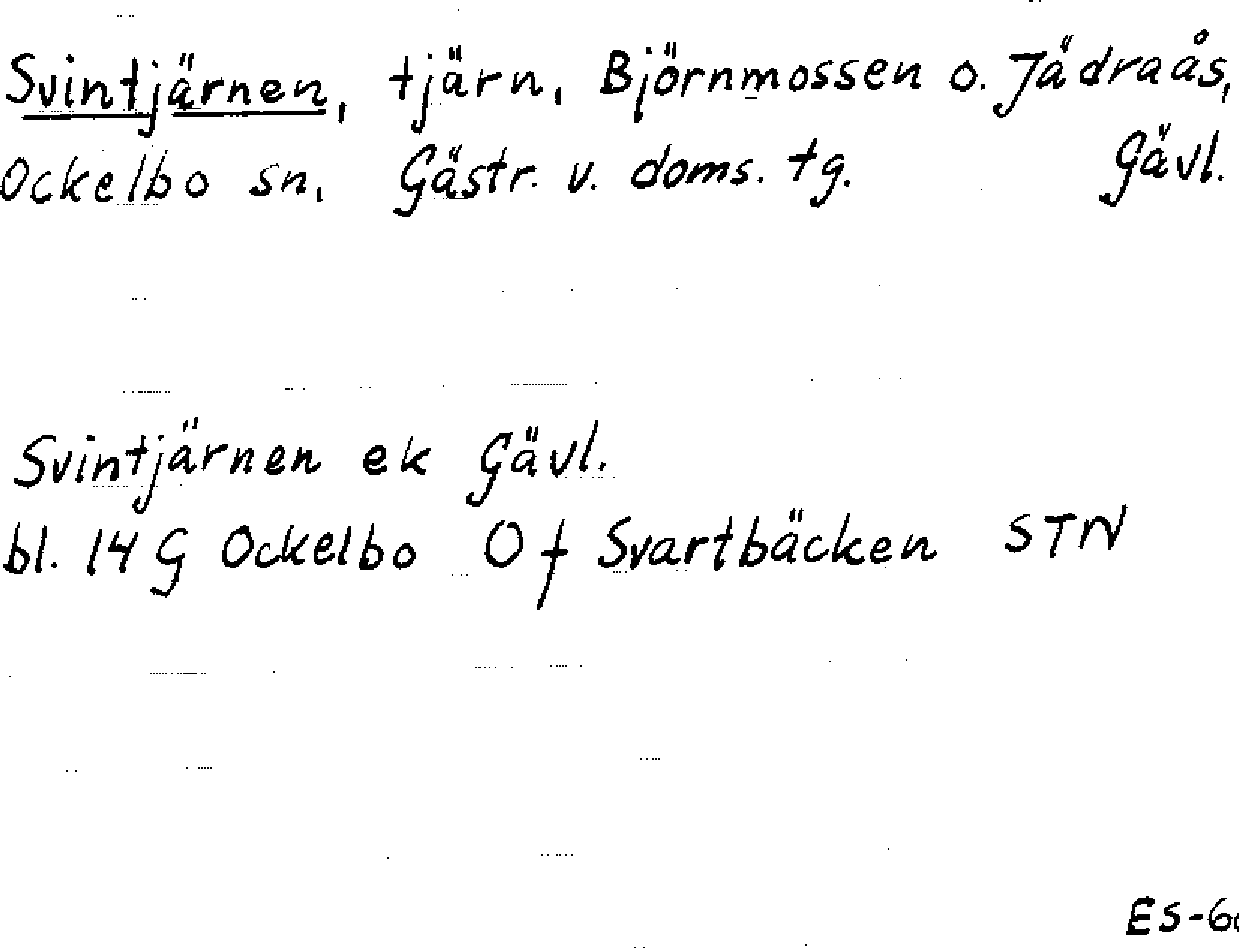 Svintjärnen, tjärn, Björnmossen o. Jädraås,
Ockelbo sn. Gästr. v. doms. tg. Gävl.
Svintjärnen ek Gävl.
bl. 14 G Ockelbo O f Svartbäcken STN